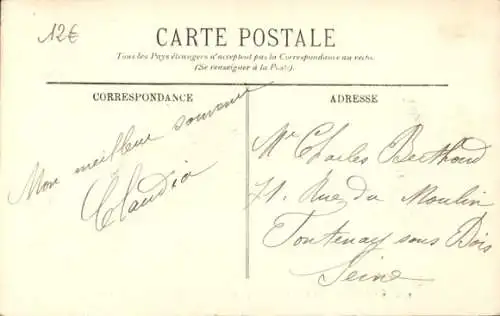 12€
CARTE POSTALE
Tous les Pays étrangers n'acceptent pas la Correspondance au recto.
(Se renseigner à la Poste).
CORRESPONDANCE
Mon meilleur souvenir
Claudia
ADRESSE
Mr Charles Berthoud
71. Rue du Moulin
Fontenay sous Bois
Seine